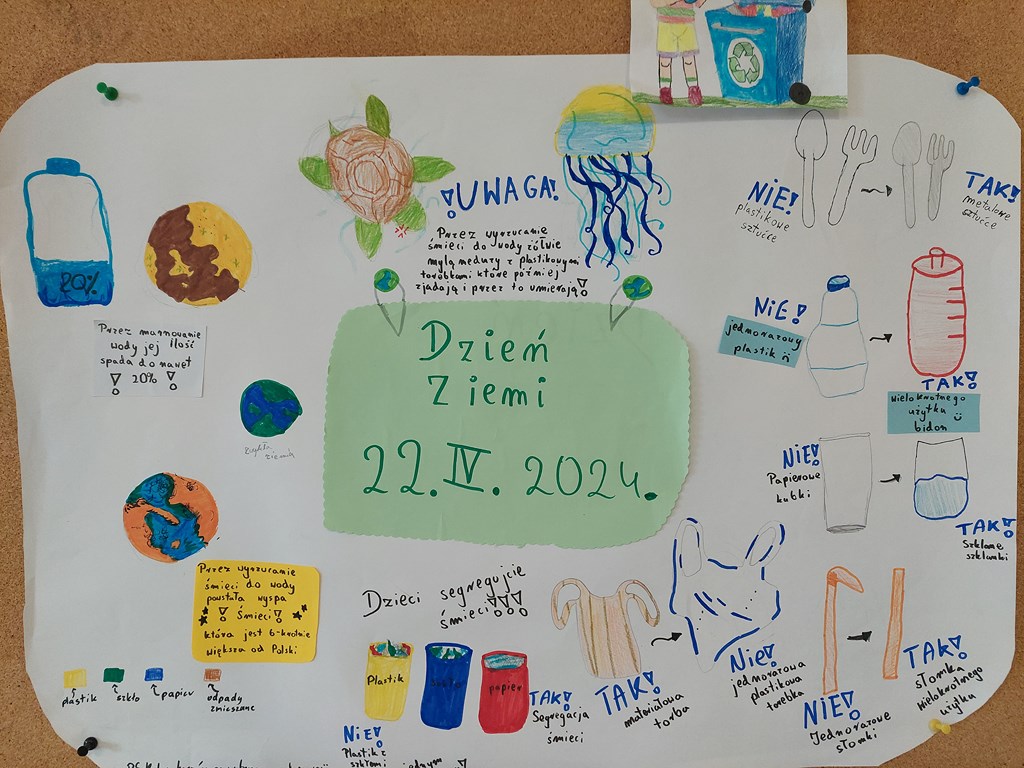 20%
Przez marnowanie
wody jej ilość
spada do nawet
! 20% !
!UWAGA!
Przez wyrzucanie
śmieci do wody żółwie
mylą meduzy z plastikowymi
torebkami które później
zjadają i przez to umierają!
Dzień
Ziemi
22.IV.2024.
NIE!
plastikowe
sztućce
TAK!
metalowe
sztućce
NIE!
jednorazowy
plastik
TAK!
wielokrotnego
użytku
bidon
NIE!
Papierowe
kubki
TAK!
Szklane
szklanki
Przez wyrzucanie
śmieci do wody
powstała wyspa
! Śmieci !
która jest 6-krotnie
większa od Polski
plastik
szkło
papier
odpady
zmieszane
Dzieci segregujcie
śmieci!!!
Plastik
szkło
papier
NIE!
Plastik z
szkłem i
TAK!
Segregacja
śmieci
TAK!
materiałowa
torba
Nie!
jednorazowa
plastikowa
torebka
NIE!
Jednorazowe
słomki
TAK!
słomka
wielokrotnego
użytku